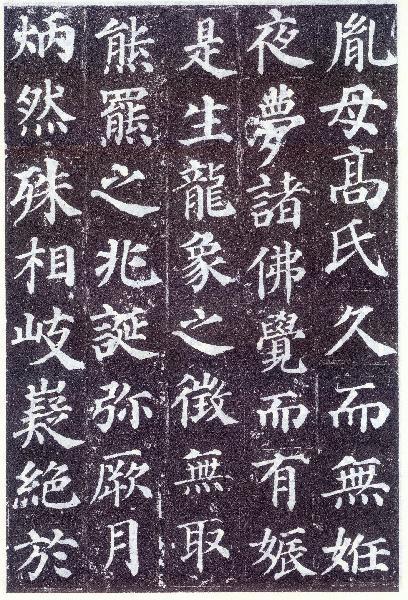 胤母髙氏久而無姙
夜夢諸佛覺而有娠
是生龍象之徵無取
熊羆之兆誕弥厥月
炳然殊相岐嶷絶於